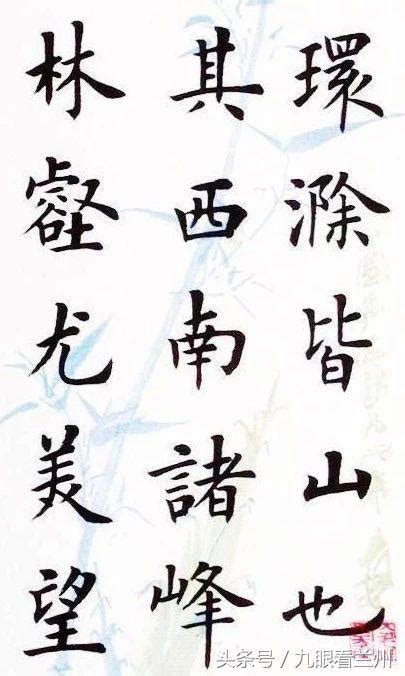 環滁皆山也
其西南諸峰
林壑尤美望
头条号/九眼看兰州